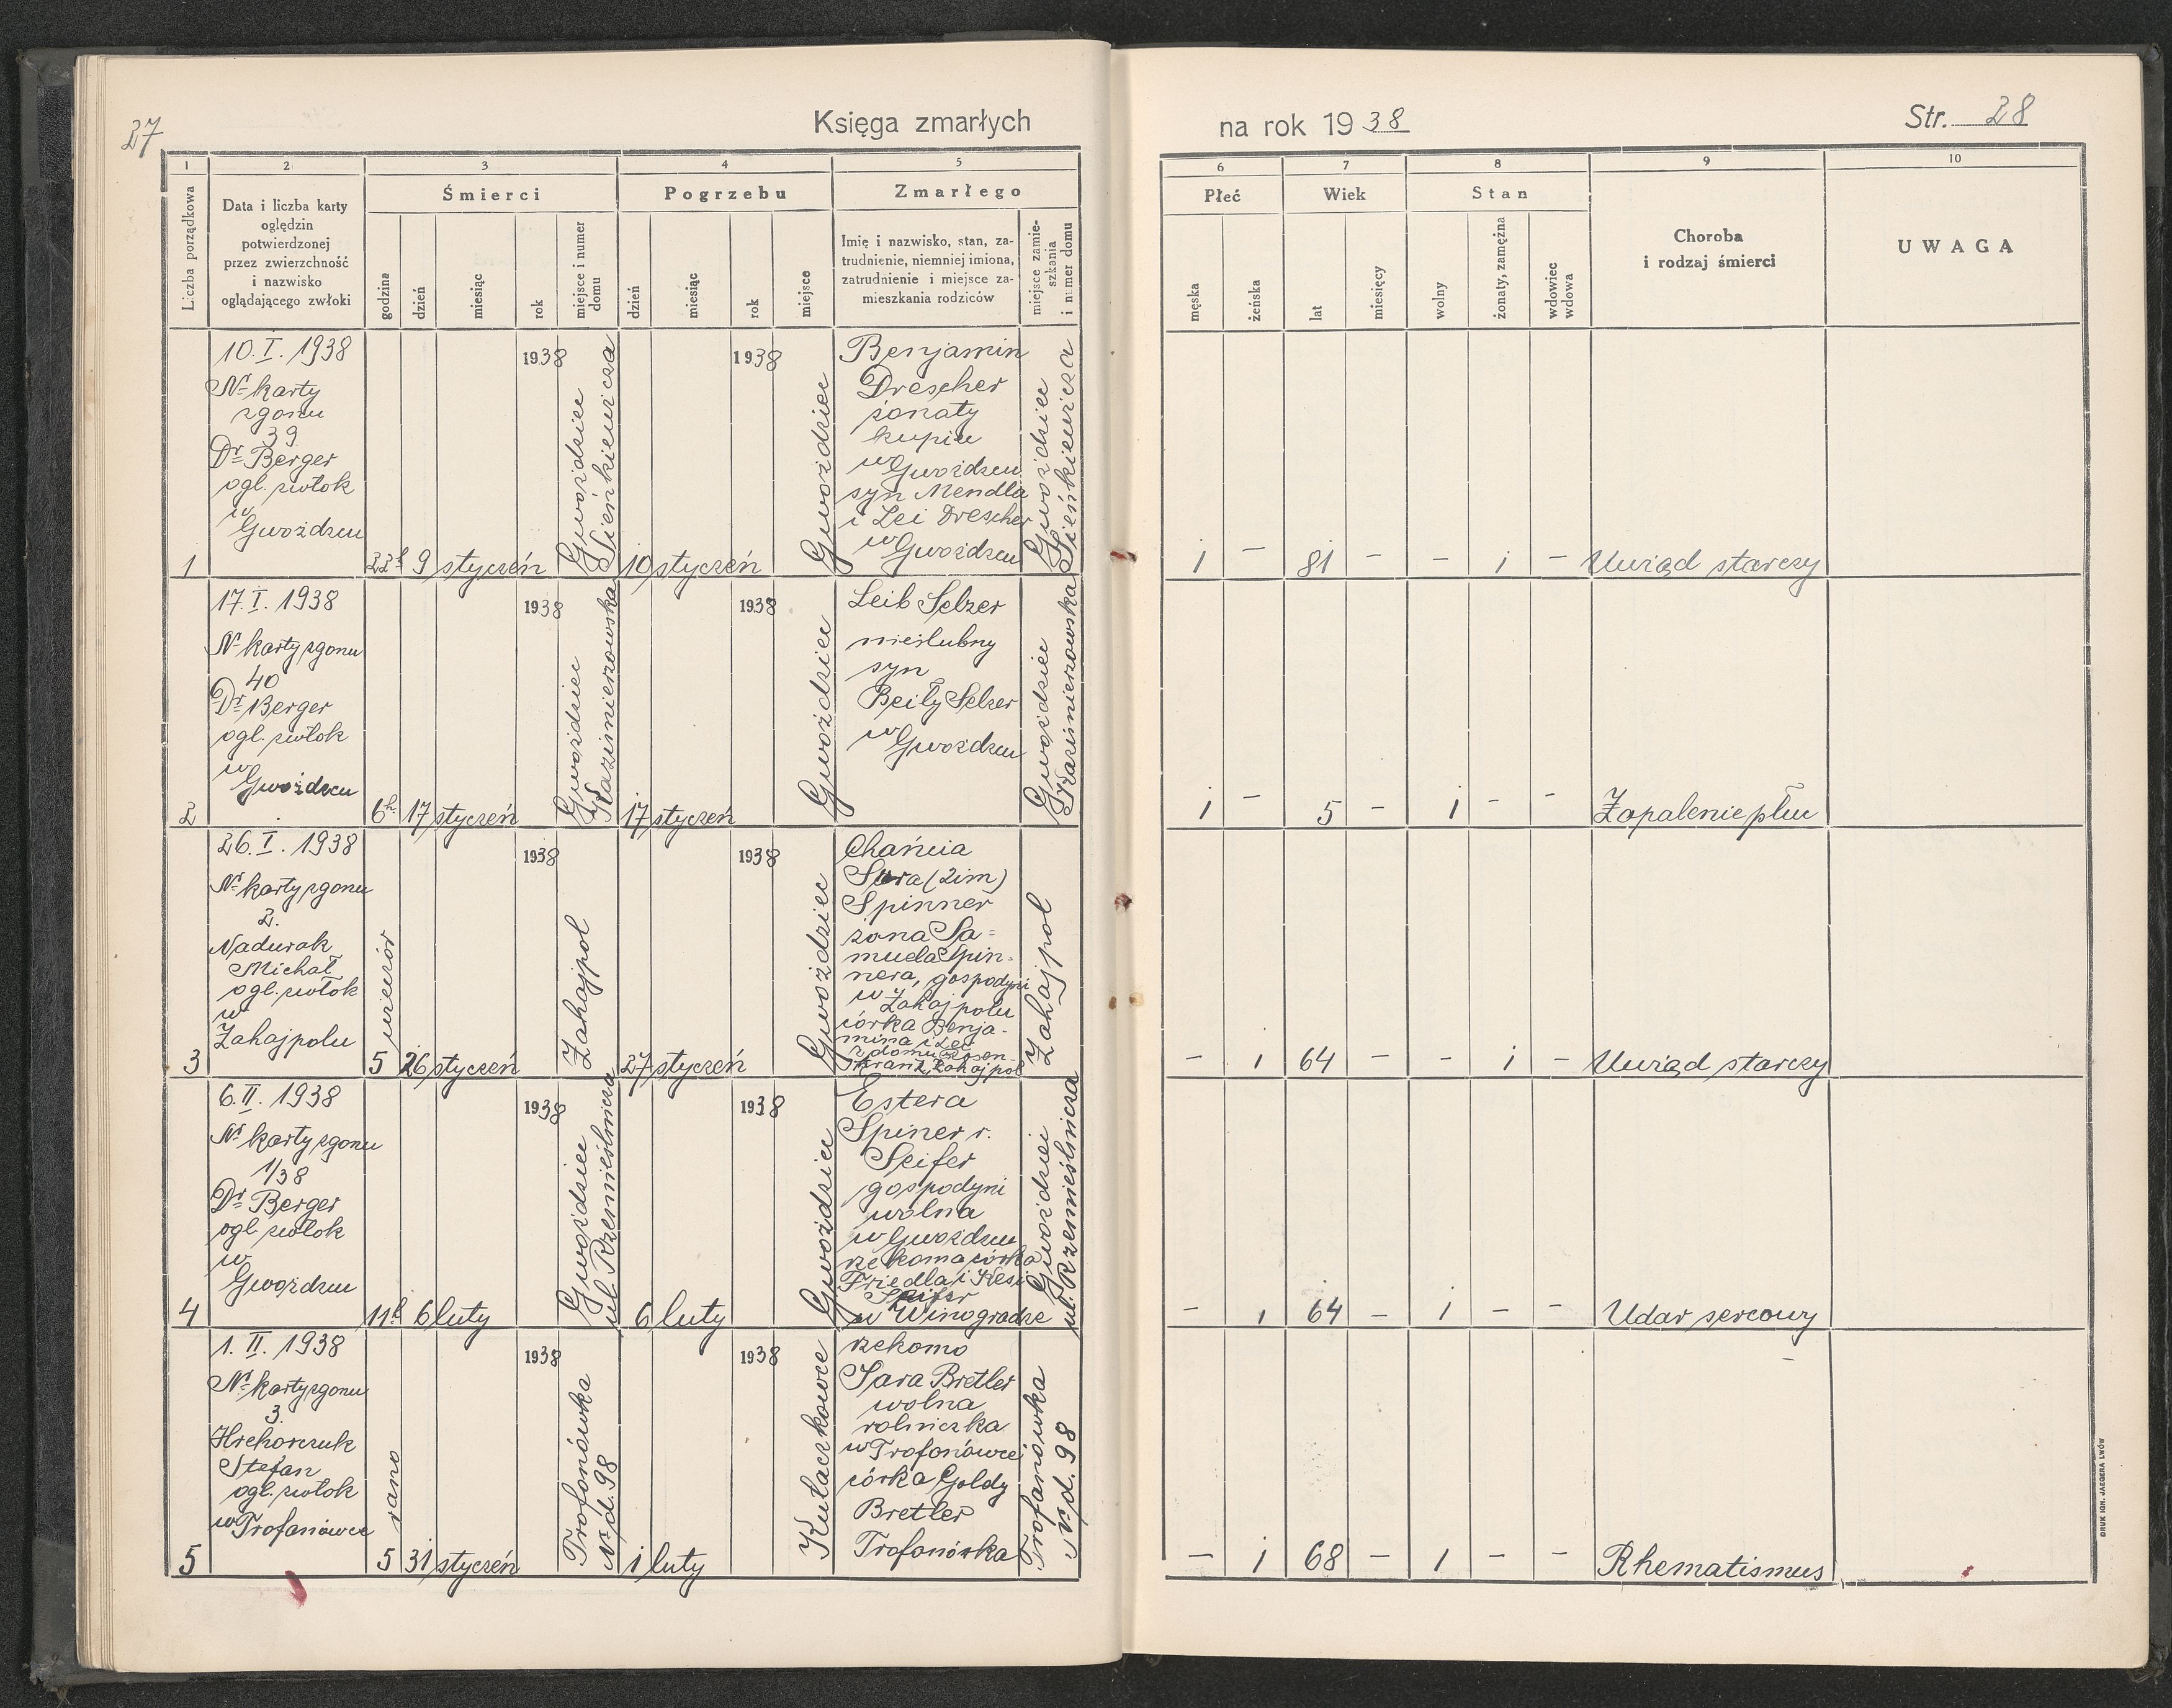 27
Księga zmarłych
na rok 1938
Str. 28
1
2
3
4
5
6
7
8
9
10
Liczba porządkowa
Data i liczba karty
oględzin
potwierdzonej
przez zwierzchność
i nazwisko
oglądającego zwłoki
Śmierci
godzina
dzień
miesiąc
rok
miejsce i numer
domu
Pogrzebu
dzień
miesiąc
rok
miejsce
Zmarłego
Imię i nazwisko, stan, za-
trudnienie, niemniej imiona,
zatrudnienie i miejsce za-
mieszkania rodziców
miejsce zamie-
szkania
i numer domu
Płeć
męska
żeńska
Wiek
lat
miesięcy
Stan
wolny
żonaty, zamężna
wdowiec
wdowa
Choroba
i rodzaj śmierci
UWAGA
1
10. I. 1938
Nr karty
zgonu
39
Dr Berger
ogl. zwłok
w
Gwoźdzcu
22h
9
styczeń
1938
Gwoździec
Sieńkiewicza
10
styczeń
1938
Gwoździec
Benjamin
Drescher
żonaty
kupiec
w
Gwoźdzcu
syn Mendla
i Lei Drescher
w
Gwoźdzcu
Gwoździec
Sieńkiewicza
1
–
81
–
–
1
–
Uwiąd starczy
2
17. I. 1938
Nr karty zgonu
40
Dr Berger
ogl. zwłok
w
Gwoźdzcu
6h
17
styczeń
1938
Gwoździec
Kazimierzowska
17
styczeń
1938
Gwoździec
Leib Selzer
nieślubny
syn
Beily Selzer
w
Gwoźdzcu
Gwoździec
Kazimierzowska
1
–
5
–
1
–
–
Zapalenie płuc
3
26. I. 1938
Nr karty zgonu
2.
Nadurak
Michał
ogl. zwłok
w
Zahajpolu
5 wieczór
26
styczeń
1938
Zahajpol
27
styczeń
1938
Gwoździec
Chańcia
Sura (2im)
Spinner
żona Sa=
muela Spin-
nera, gospodyni
w Zahajpolu
córka Benja-
mina i Lei
z domu Rosen-
Zahajpol
Zahajpol
–
1
64
–
–
1
–
Uwiąd starczy
4
6. II. 1938
Nr karty zgonu
1/38
Dr Berger
ogl. zwłok
w
Gwoźdzcu
11h
6
luty
1938
Gwoździec
ul. Rzemieślnicza
6
luty
1938
Gwoździec
Estera
Spiner r.
Seifer
gospodyni
wolna
w Gwoźdzcu
rzekoma córka
Friedla i Kesi
Seifer
w Winogradze
Gwoździec
ul. Rzemieślnicza
–
1
64
–
1
–
–
Udar sercowy
5
1. II. 1938
Nr karty zgonu
3.
Hrehorczuk
Stefan
ogl. zwłok
w Trofanówce
5 rano
31
styczeń
1938
Trofanówka
Nr d. 98
1
luty
1938
Kułaczkowce
rzekomo
Sara Bretler
wolna
rolniczka
w Trofanówce
córka Goldy
Bretler
Trofanówka
Trofanówka
Nr d. 98
–
1
68
–
1
–
–
Rhematismus
DRUK IGN. JAEGERA LWÓW